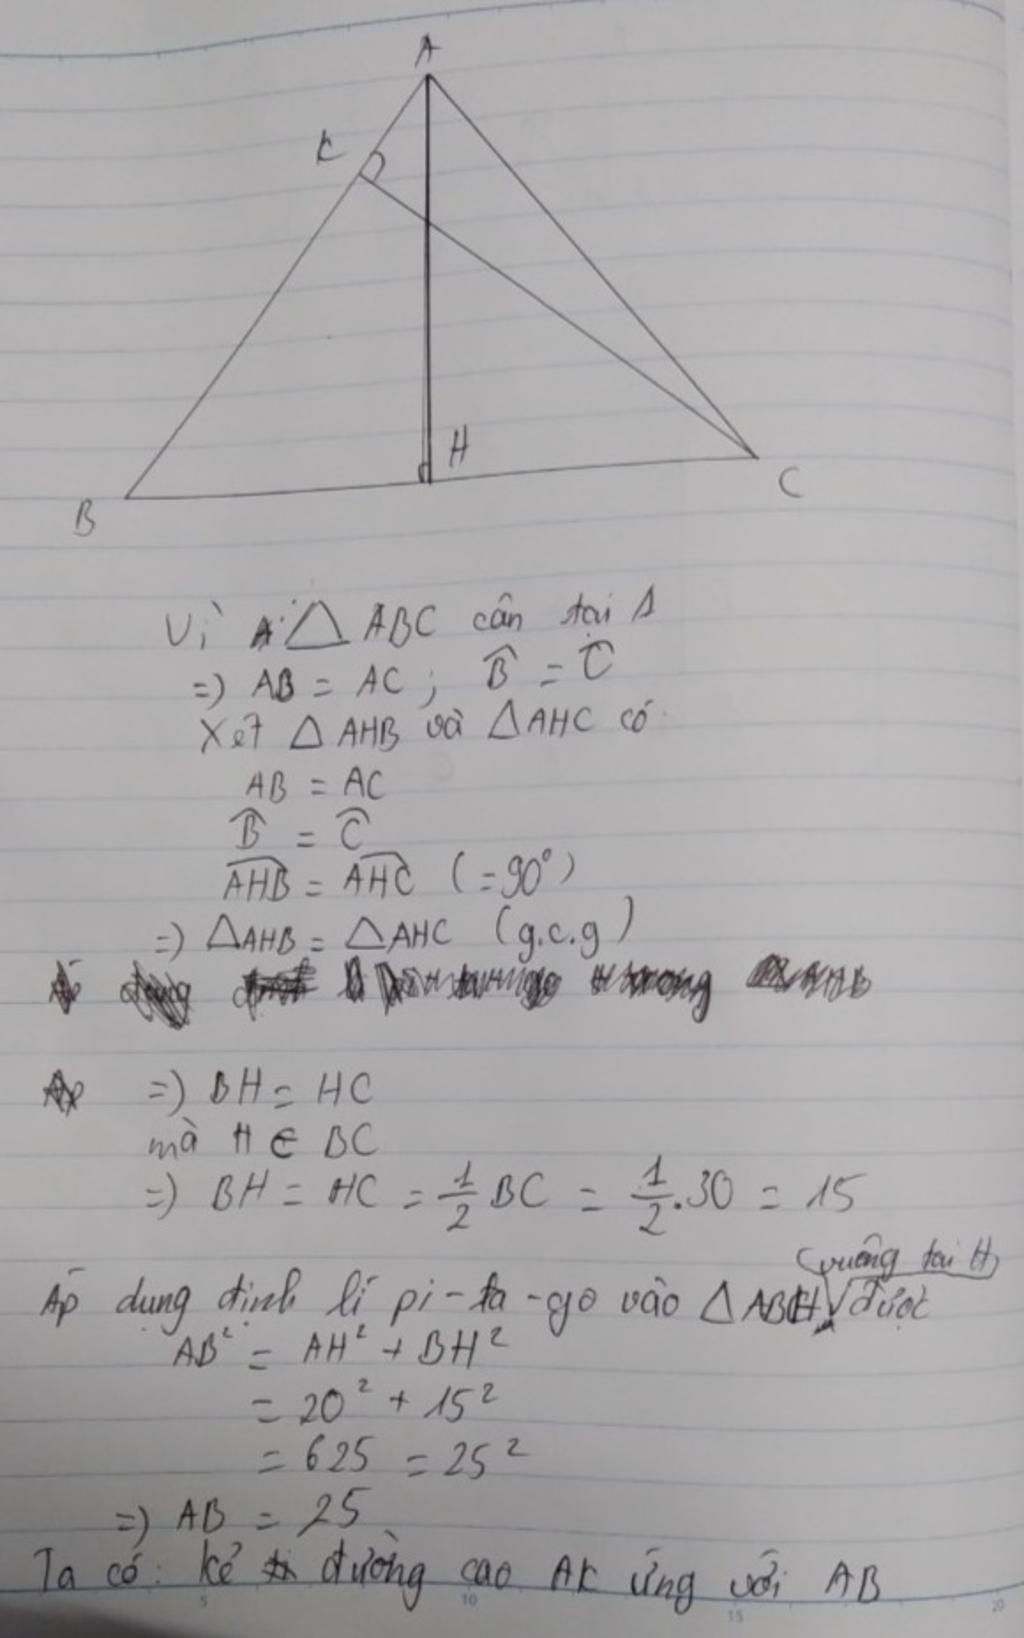 A
K
H
B
C
Vì △ ABC cân tại A
=) AB = AC ; B̂ = Ĉ
Xét △ AHB và △AHC có
AB = AC
B̂ = Ĉ
AHB = AHC (=90°)
=) △AHB = △AHC (g.c.g)
=) BH = HC
mà H ∈ BC
=) BH = HC = 1/2 BC = 1/2 . 30 = 15
(vuông tại H)
Áp dụng định lí pi-ta-go vào △ ABH được
AB² = AH² + BH²
= 20² + 15²
= 625 = 25²
=) AB = 25
Ta có: kẻ đường cao AK ứng với AB
5 10 15 20